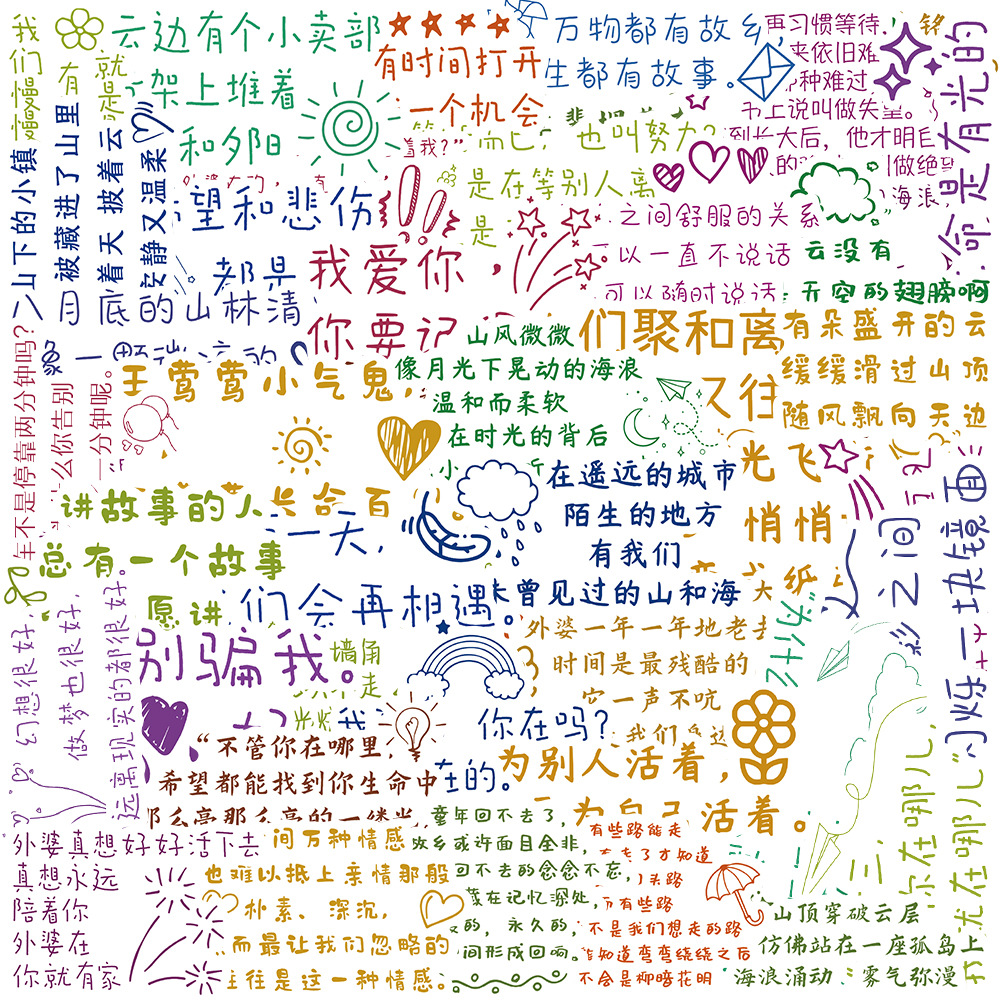 我们慢慢
云边有个小卖部
架上堆着
和夕阳
有时间打开
一个机会
着我?”
万物都有故乡
生都有故事。
再习惯等待,
来依旧难
种难过
书上说叫做失望。
到长大后,他才明白
做绝望
海浪,
命是有光的
山下的小镇
有
被藏进了山里
就是
着天 披着云
安静又温柔
望和悲伤
都是
月底的山林清
而已,也叫努力?
是在等别人离
是
之间舒服的关系
以一直不说话
可以随时说话
云没有
天空的翅膀啊
我爱你,
你要记
山风微微
像月光下晃动的海浪
温和而柔软
在时光的背后
们聚和离
又往
有朵盛开的云
缓缓滑过山顶
随风飘向天边
王莺莺小气鬼,
年不是停靠两分钟吗?
么你告别
一分钟呢。
讲故事的人
总有一个故事
愿讲
一天,
们会再相遇。
在遥远的城市
陌生的地方
有我们
曾见过的山和海
光飞
悄悄
大纸
“为什么
彩之间
闪烁一块镜面
幻想很好,
做梦也很好,
远离现实的都很好。
别骗我。
墙角
不走
外婆一年一年地老去
时间是最残酷的
它一声不吭
我们
你在吗?
在的。
“不管你在哪里,
希望都能找到你生命中
那么亮那么亮的一缕光
为别人活着,
为自己活着。
你在哪儿,
尤在哪儿”
外婆真想好好活下去
真想永远
陪着你
外婆在
你就有家
间万种情感
也难以抵上亲情那般
朴素、深沉,
而最让我们忽略的
往往是这一种情感。
童年回不去了,
故乡或许面目全非,
回不去的念念不忘,
藏在记忆深处,
的,永久的,
间形成回响。
有些路能走
走了才知道
回头路
有些路
不是我们想走的路
知道弯弯绕绕之后
不会是柳暗花明
山顶穿破云层
仿佛站在一座孤岛上
海浪涌动 雾气弥漫